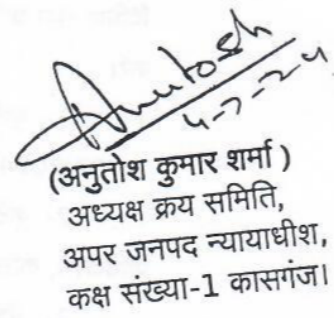 Anutosh
4-7-24
(अनुतोश कुमार शर्मा )
अध्यक्ष क्रय समिति,
अपर जनपद न्यायाधीश,
कक्ष संख्या-1 कासगंज।